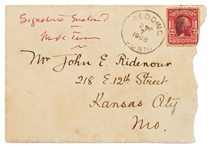 Signature Enclosed
Mark Twain
REDDING
1908
CONN.
Mr John E. Ridenour
218 E. 12th Street
Kansas City
Mo.